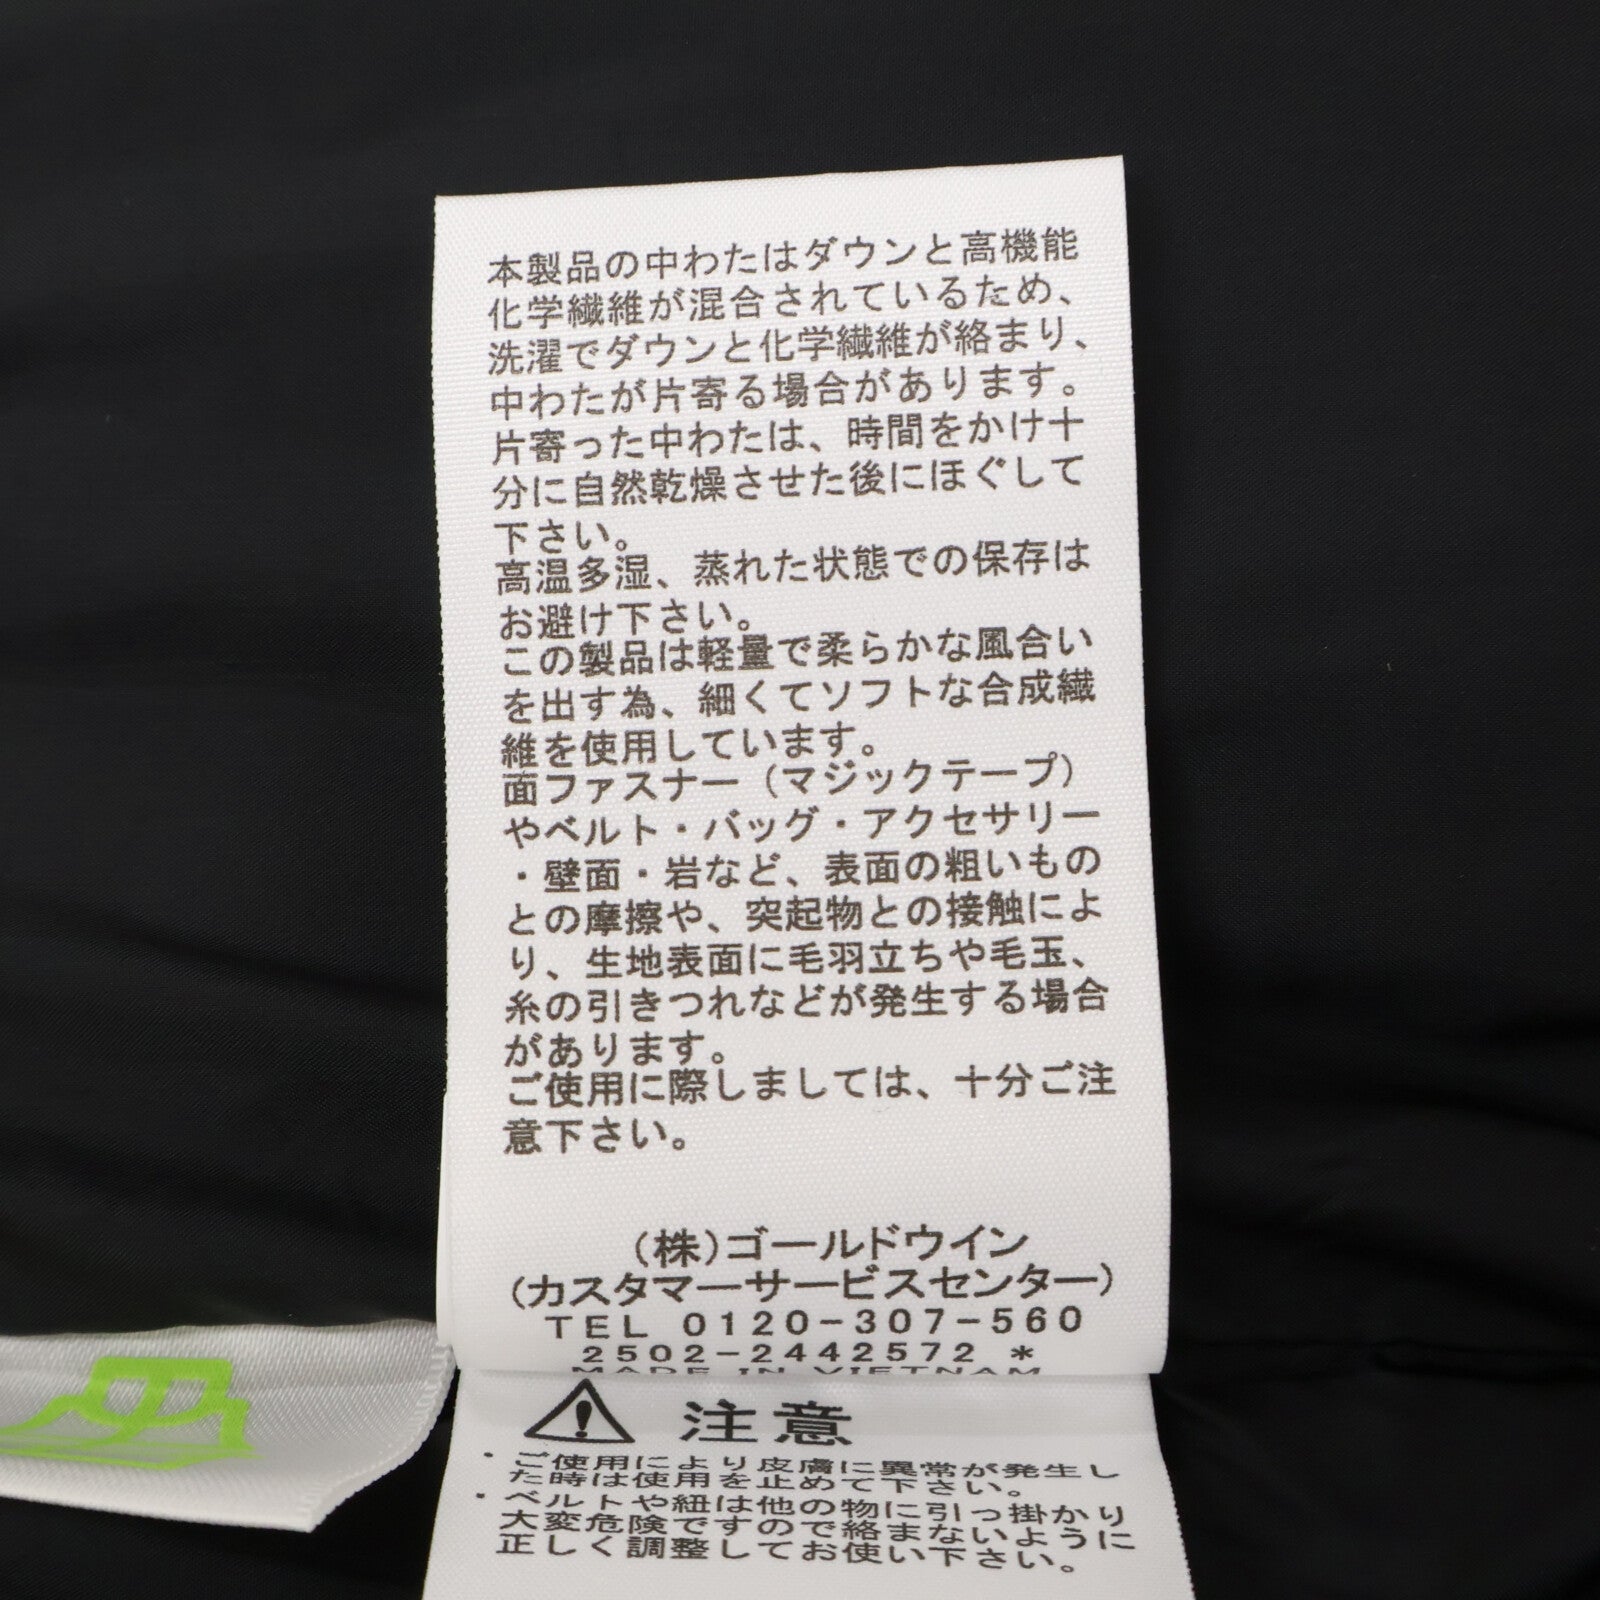 本製品の中わたはダウンと高機能
化学繊維が混合されているため、
洗濯でダウンと化学繊維が絡まり、
中わたが片寄る場合があります。
片寄った中わたは、時間をかけ十
分に自然乾燥させた後にほぐして
下さい。
高温多湿、蒸れた状態での保存は
お避け下さい。
この製品は軽量で柔らかな風合い
を出す為、細くてソフトな合成繊
維を使用しています。
面ファスナー（マジックテープ）
やベルト・バッグ・アクセサリー
・壁面・岩など、表面の粗いもの
との摩擦や、突起物との接触によ
り、生地表面に毛羽立ちや毛玉、
糸の引きつれなどが発生する場合
があります。
ご使用に際しましては、十分ご注
意下さい。
(株)ゴールドウイン
(カスタマーサービスセンター)
TEL 0120-307-560
2502-2442572 *
MADE IN VIETNAM
注意
・ご使用により皮膚に異常が発生し
た時は使用を止めて下さい。
・ベルトや紐は他の物に引っ掛かり
大変危険ですので絡まないように
正しく調整してお使い下さい。